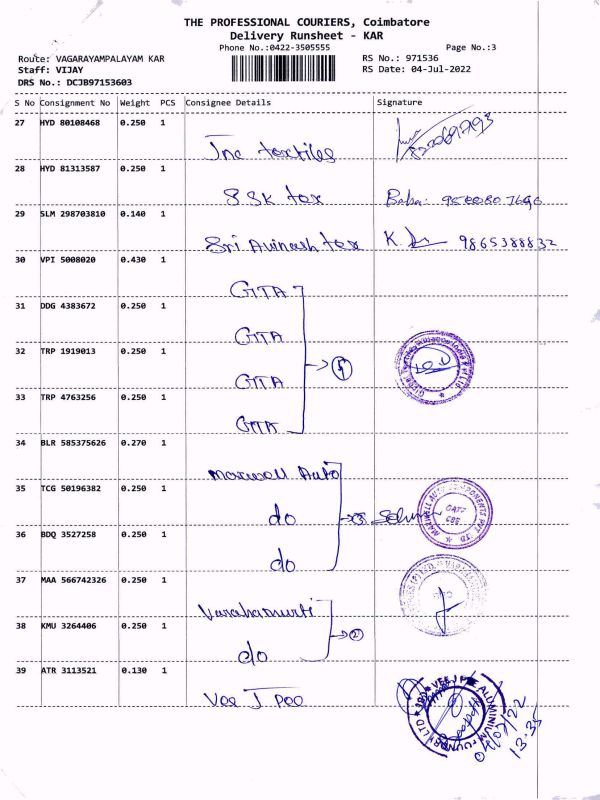 THE PROFESSIONAL COURIERS, Coimbatore
Delivery Runsheet - KAR
Phone No.:0422-3505555
Page No.:3
Route: VAGARAYAMPALAYAM KAR
RS No.: 971536
Staff: VIJAY
RS Date: 04-Jul-2022
DRS No.: DCJB97153603
S No Consignment No Weight PCS Consignee Details Signature
27 HYD 80108468 0.250 1
Jnc textiles
28 HYD 81313587 0.250 1
SSK tex Baba:
29 SLM 298703810 0.140 1
Sri Avinash tex K. 9865388832
30 VPI 5008020 0.430 1
GTA
31 DDG 4383672 0.250 1
GTA
32 TRP 1919013 0.250 1
GTA
33 TRP 4763256 0.250 1
GTA
34 BLR 585375626 0.270 1
Maxwell Auto
35 TCG 50196382 0.250 1
do
MAXWELL AUTO COMPONENTS PVT LTD
36 BDQ 3527258 0.250 1
do
37 MAA 566742326 0.250 1
Varahamurti
38 KMU 3264406 0.250 1
do
2
39 ATR 3113521 0.130 1
Vee J Pee
VEEJAY ALUMINIUM FOUNDRY LTD
04/07/22
13.35